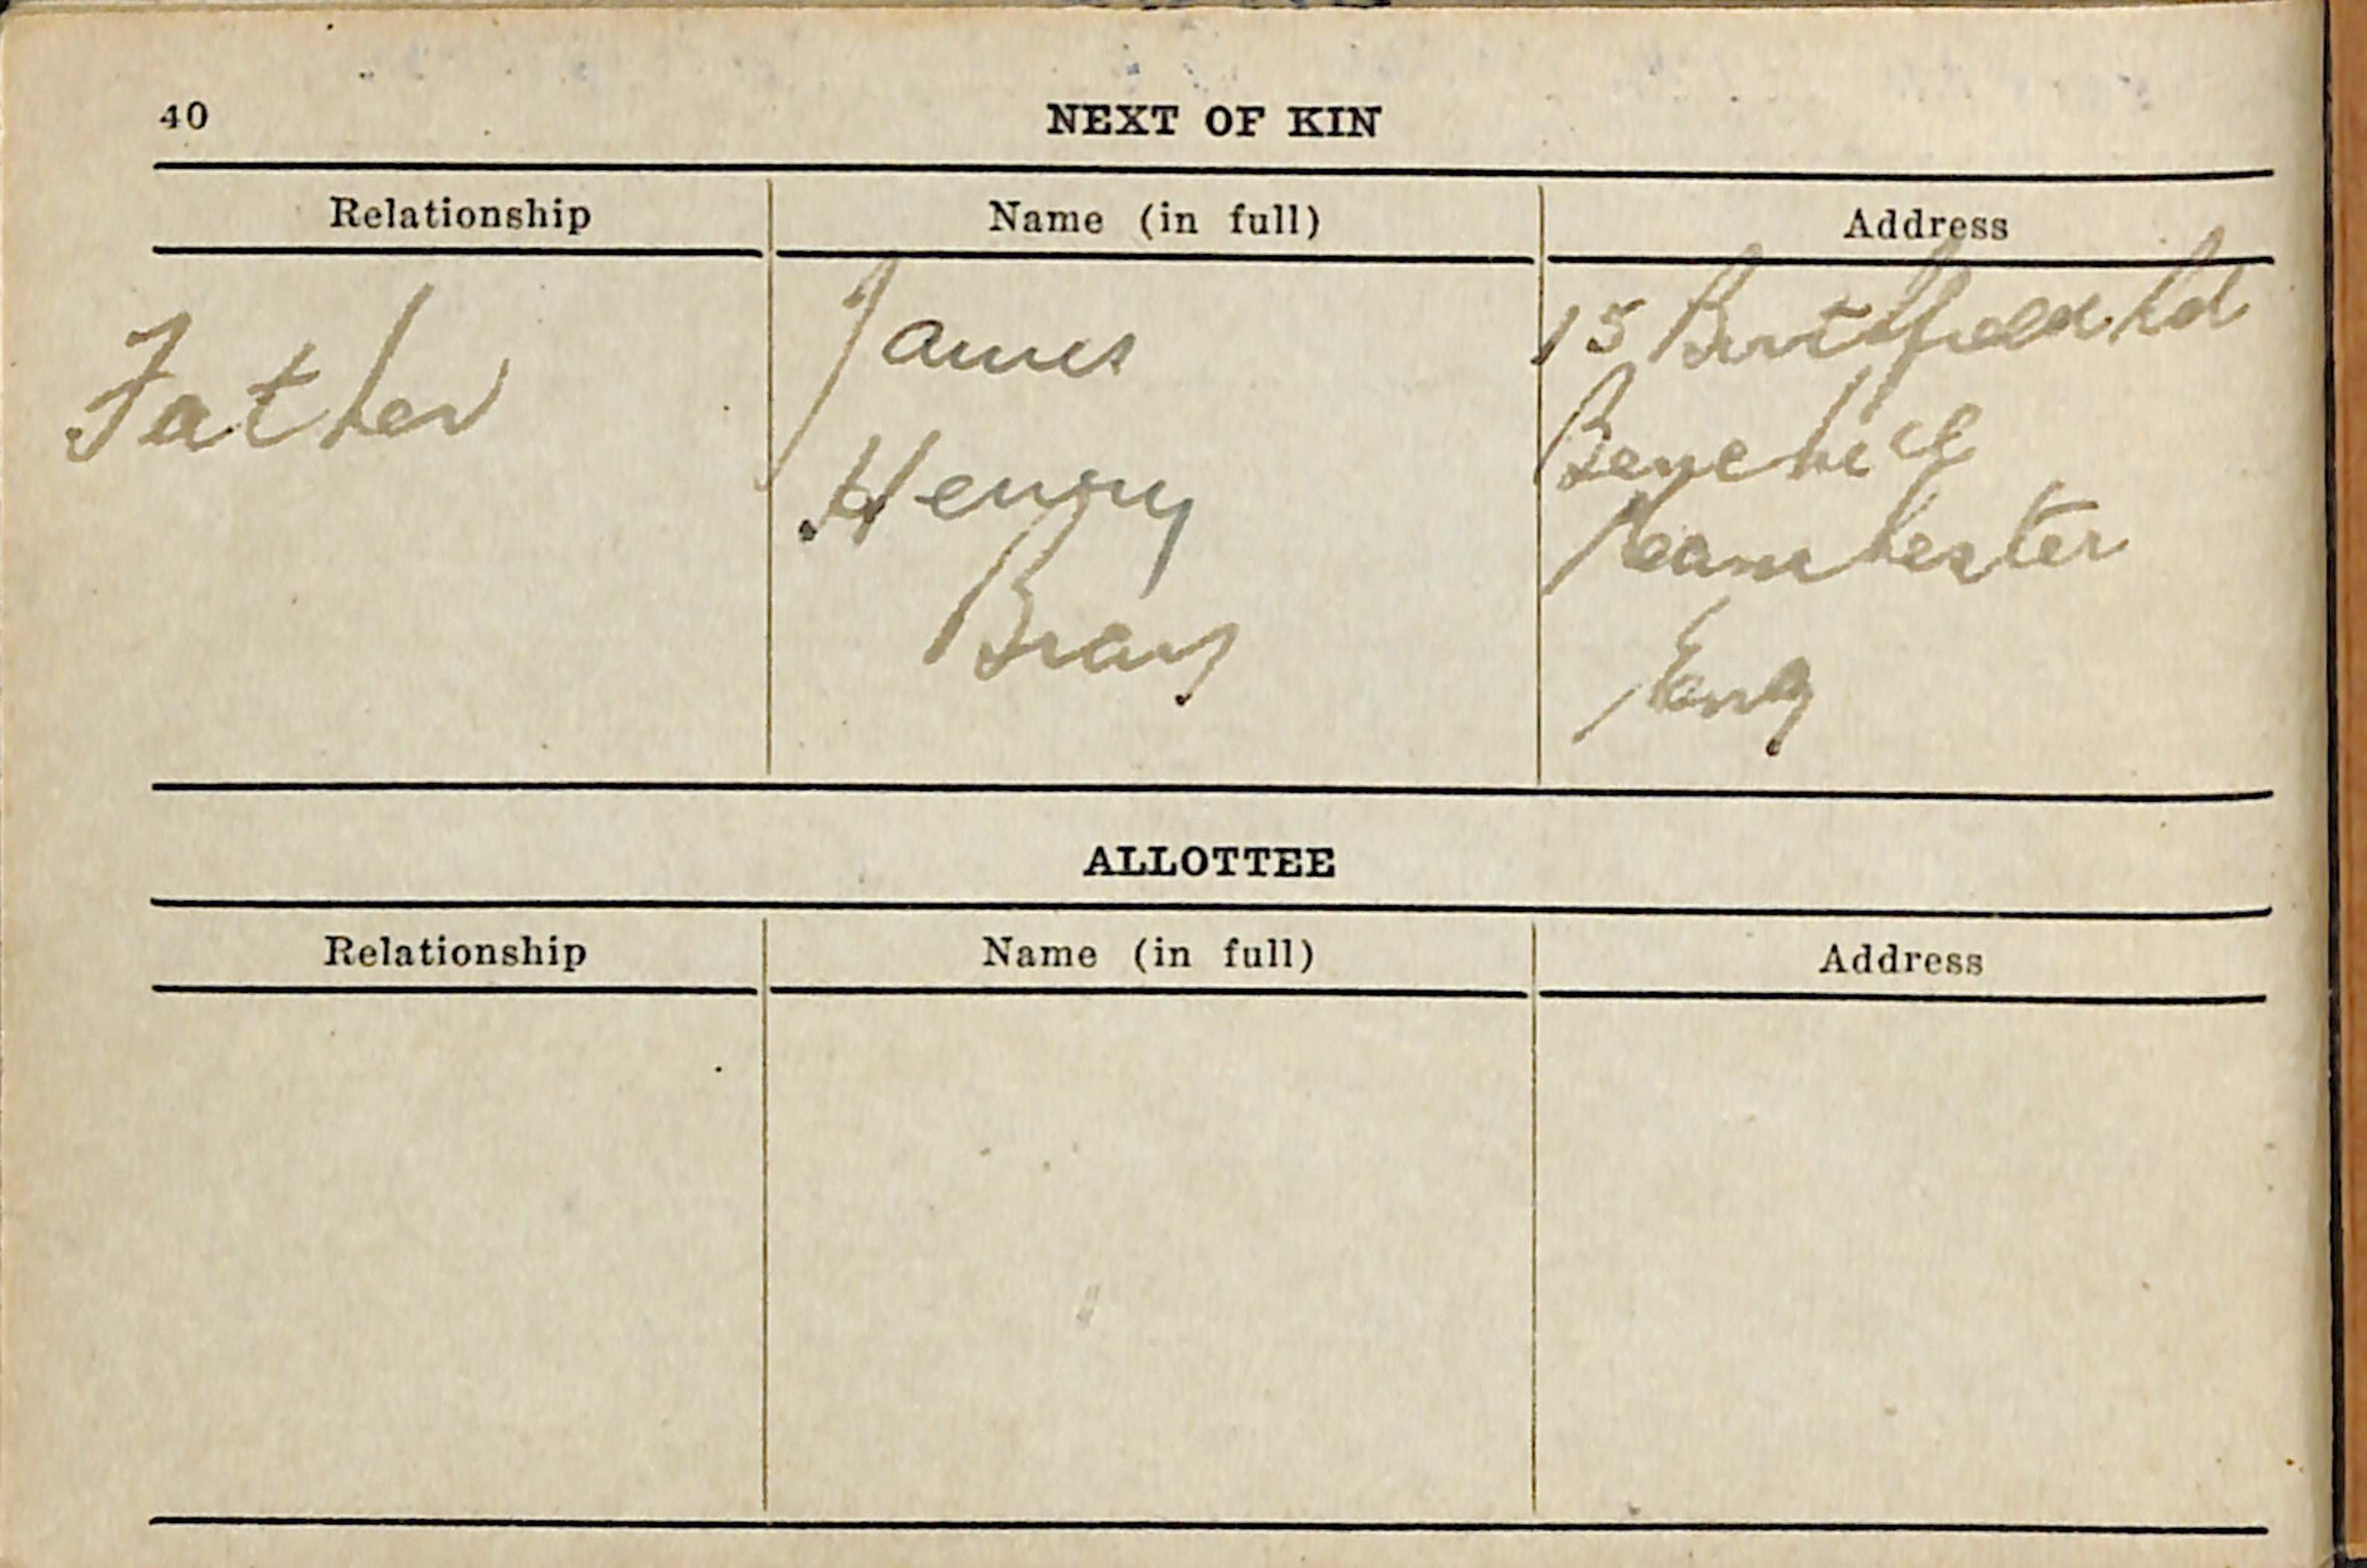 40
NEXT OF KIN
Relationship Name (in full) Address
Father
James
Henry
Bray
15 Rd
Benchill
Manchester
Eng
ALLOTTEE
Relationship Name (in full) Address